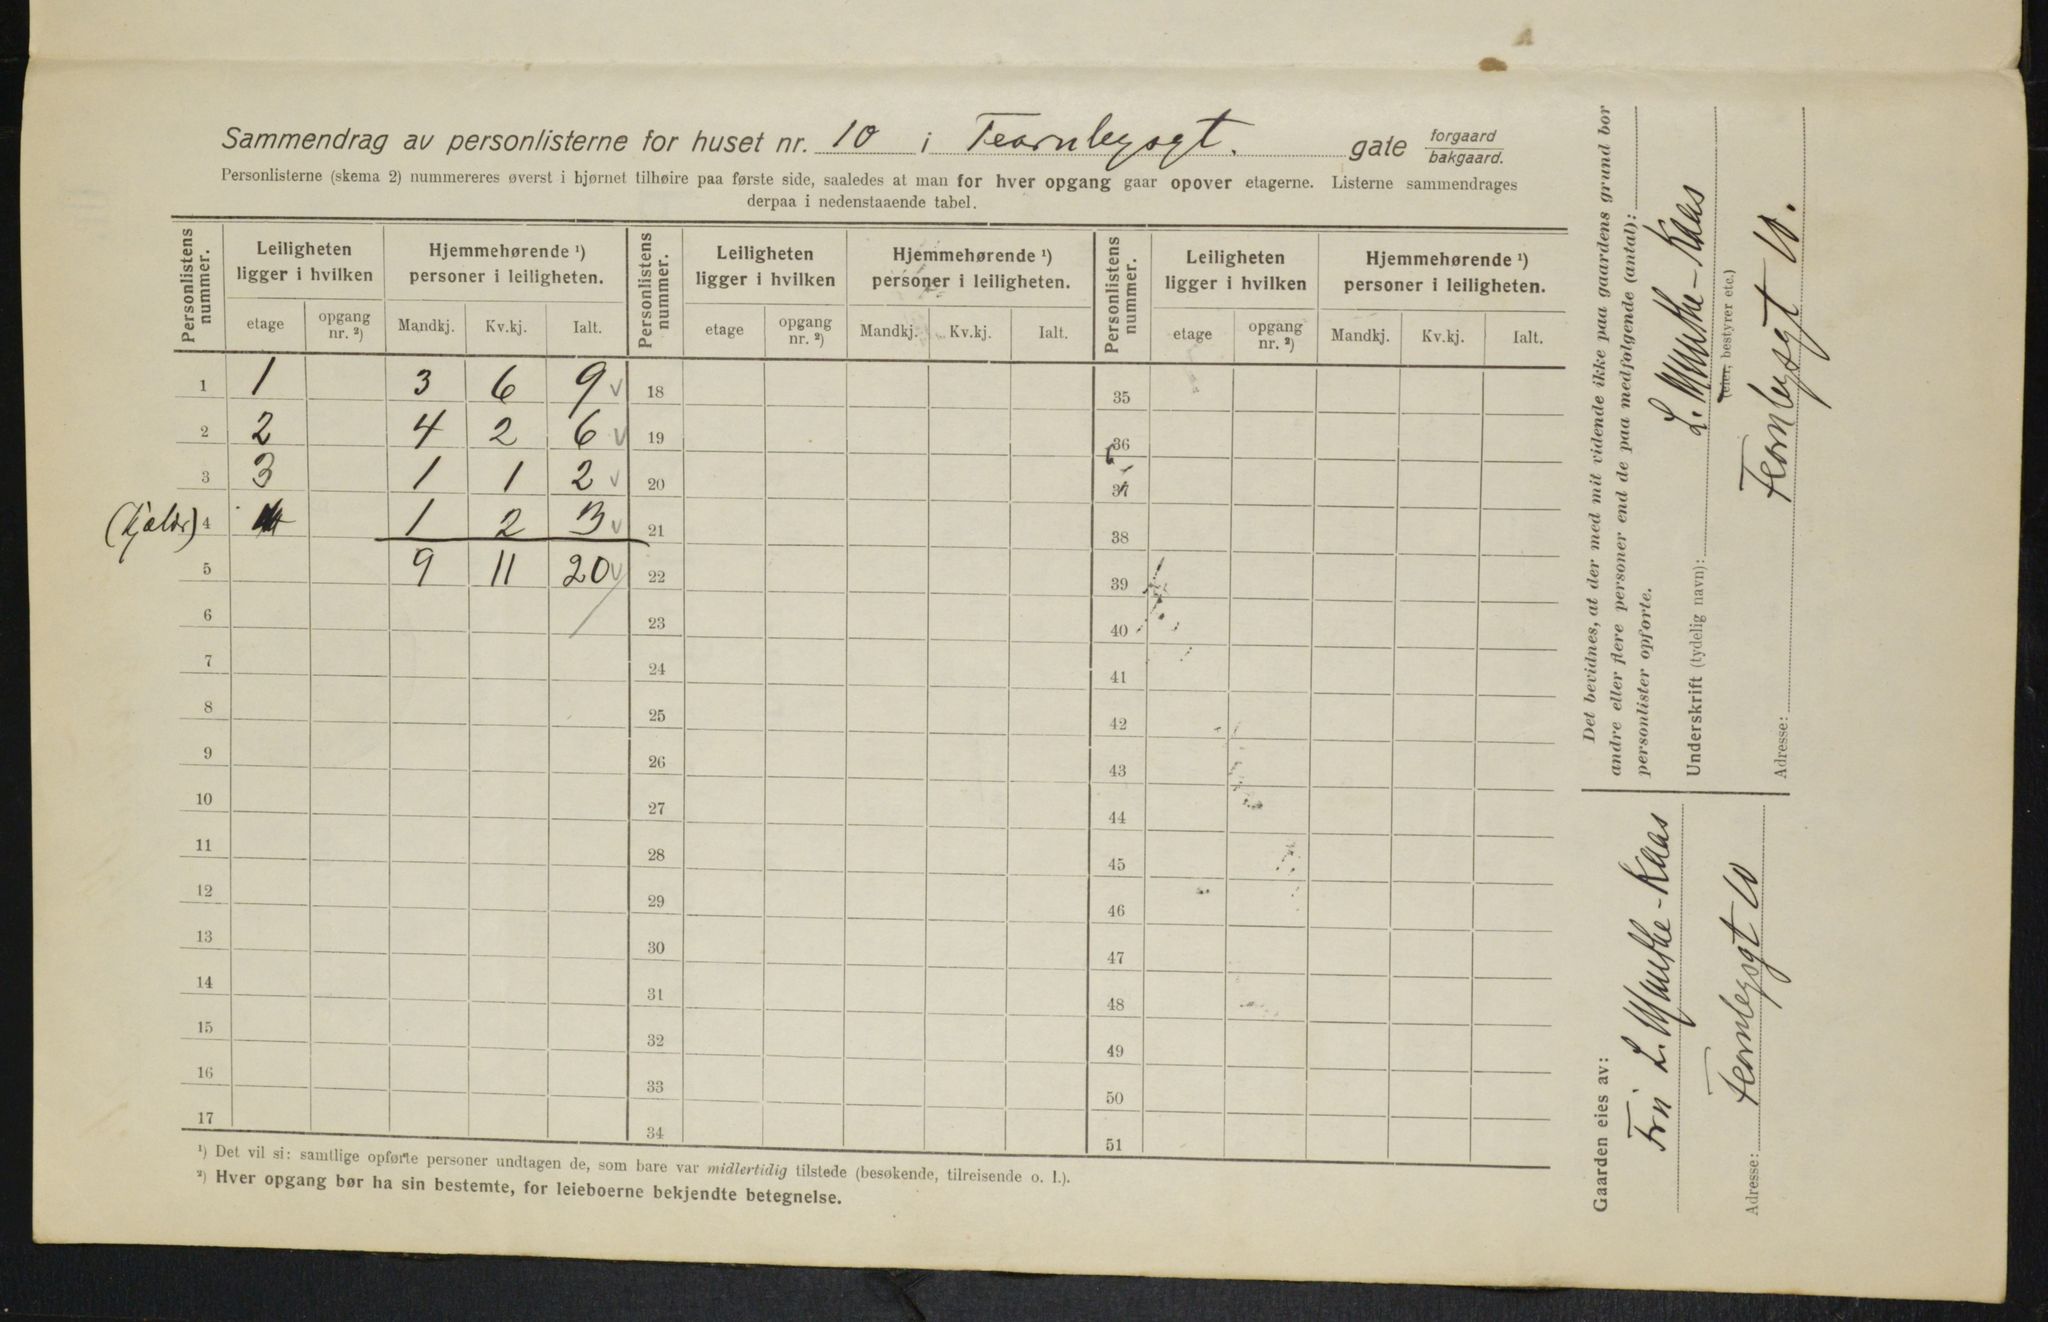 Sammendrag av personlisterne for huset nr. 10 i Fearnleysgt. gate forgaard bakgaard.
Personlisterne (skema 2) nummereres øverst i hjørnet tilhøire paa første side, saaledes at man for hver opgang gaar opover etagerne. Listerne sammendrages
derpaa i nedenstaaende tabel.
Personlistens nummer. Leiligheten ligger i hvilken Hjemmehørende ¹) personer i leiligheten. Personlistens nummer. Leiligheten ligger i hvilken Hjemmehørende ¹) personer i leiligheten. Personlistens nummer. Leiligheten ligger i hvilken Hjemmehørende ¹) personer i leiligheten.
etage opgang nr. ²) Mandkj. Kv.kj. Ialt. etage opgang nr. ²) Mandkj. Kv.kj. Ialt. etage opgang nr. ²) Mandkj. Kv.kj. Ialt.
1 1 3 6 9 18 35
2 2 4 2 6 19 36
3 3 1 1 2 20 37
(kjæld) 4 1 2 3 21 38
5 9 11 20 22 39
6 23 40
7 24 41
8 25 42
9 26 43
10 27 44
11 28 45
12 29 46
13 30 47
14 31 48
15 32 49
16 33 50
17 34 51
¹) Det vil si: samtlige opførte personer undtagen de, som bare var midlertidig tilstede (besøkende, tilreisende o. l.).
²) Hver opgang bør ha sin bestemte, for leieboerne bekjendte betegnelse.
Det bevidnes, at der med mit vidende ikke paa gaardens grund bor
andre eller flere personer end de paa medfølgende (antal):
personlister opførte.
Underskrift (tydelig navn): L. Munthe-Kaas
(eier, bestyrer etc.)
Adresse: Fearnleysgt 10.
Gaarden eies av:
Fru L. Munthe-Kaas
Adresse: Fearnleysgt 10